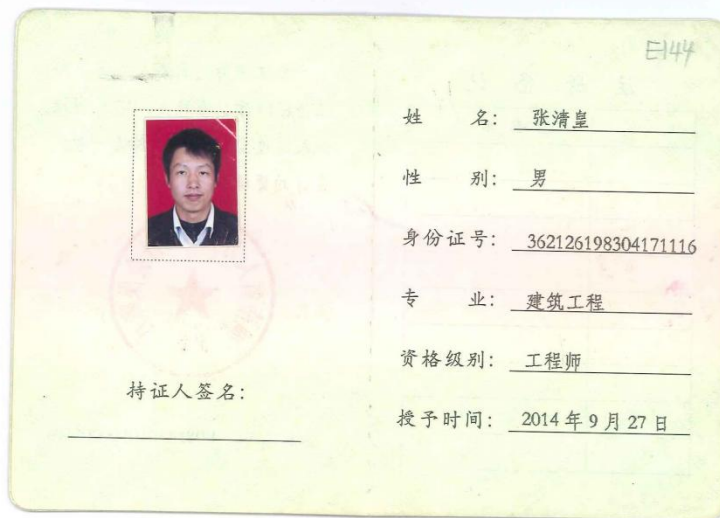 E144
姓 名： 张清皇
性 别： 男
身份证号： 362126198304171116
专 业： 建筑工程
资格级别： 工程师
授予时间： 2014年9月27日
持证人签名：